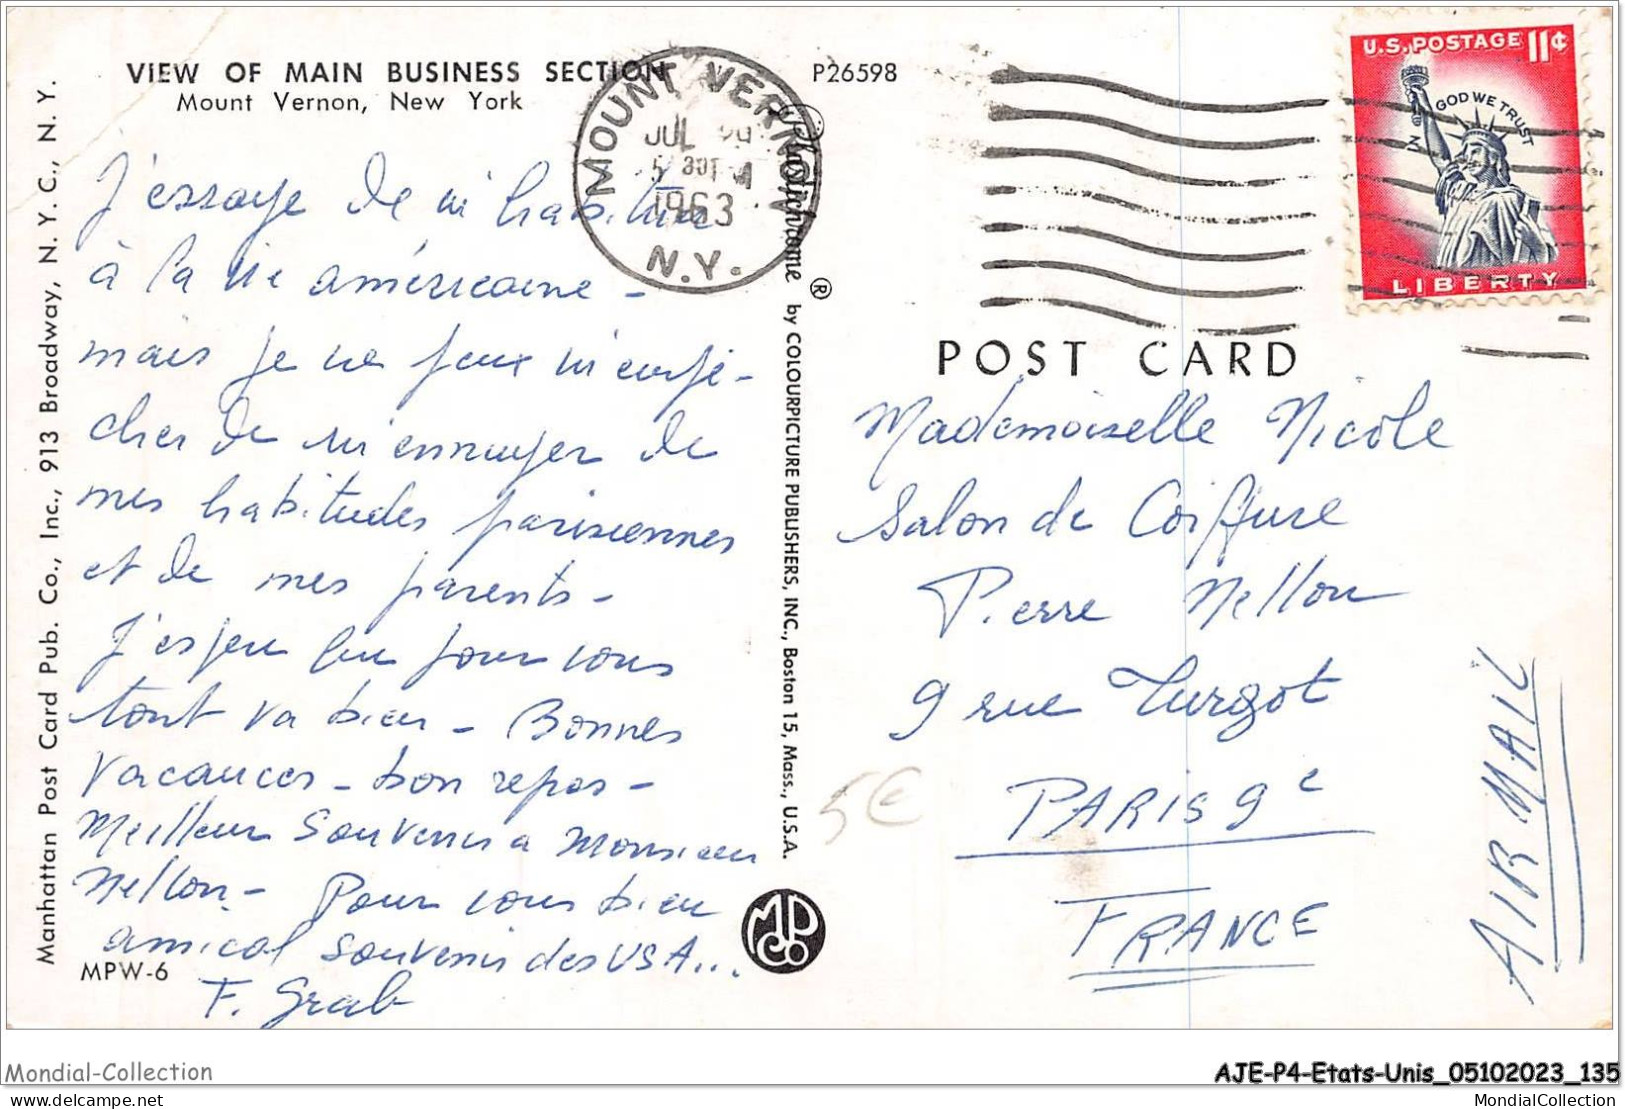 VIEW OF MAIN BUSINESS SECTION
Mount Vernon, New York
P26598
J'essaye de m'habituer
à la vie américaine -
mais je ne peux m'empê-
cher de m'ennuyer de
mes habitudes parisiennes
et de mes parents -
J'espère que pour vous
tout va bien - Bonnes
Vacances - bon repos -
Meilleur Souvenir à Monsieur
Nellon - Pour vous bien
amical souvenir des USA...
F. Grab
MPW-6
Manhattan Post Card Pub. Co., Inc., 913 Broadway, N. Y. C., N. Y.
MOUNT VERNON
JUL
1963
N.Y.
Plastichrome ® by COLOURPICTURE PUBLISHERS, INC., Boston 15, Mass., U.S.A.
MPCo
U.S. POSTAGE 11¢
IN GOD WE TRUST
LIBERTY
POST CARD
Mademoiselle Nicole
Salon de Coiffure
Pierre Nellon
9 rue Turgot
PARIS 9e
FRANCE
AIR MAIL
5€
Mondial-Collection
AJE-P4-Etats-Unis_05102023_135
https://mpArtEtHisto.delcampe.net
MondialCollection